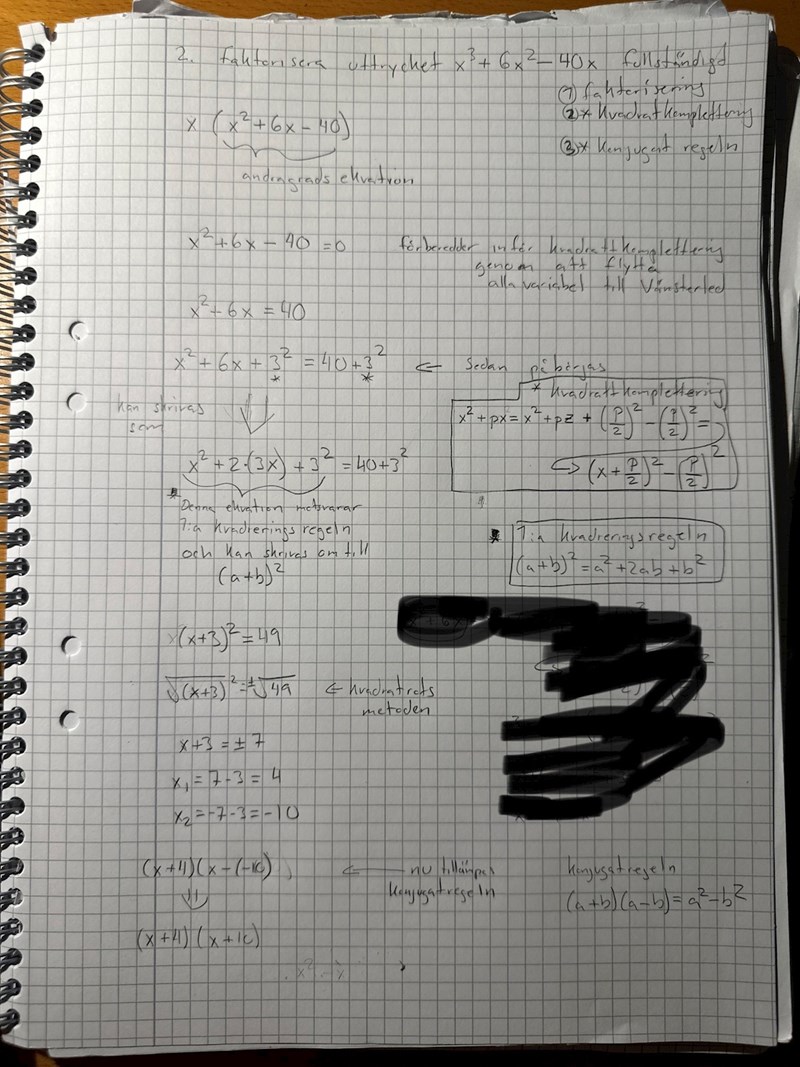 2. Faktorisera uttrycket x³ + 6x² - 40x fullständigd
① faktorisering
②* kvadratkomplettering
③* konjugat regeln
x (x² + 6x - 40)
andragrads ekvation
x² + 6x - 40 = 0
förberedder inför kvadrattkomplettering
genom att flytta
alla variabel till Vänsterled
x² + 6x = 40
x² + 6x + 3² = 40 + 3² ← Sedan påbörjas
* *
* kvadrattkomplettering
x² + px = x² + pz + (p/2)² - (p/2)² =
↪ (x + p/2)² - (p/2)²
kan skrivas
som
x² + 2·(3x) + 3² = 40 + 3²
* Denna ekvation motsvarar
1:a kvadrerings regeln
och kan skrivas om till
(a+b)²
1:a kvadreringsregeln
(a+b)² = a² + 2ab + b²
(x+3)² = 49
√(x+3)² = ±√49 ← kvadratrots
metoden
x + 3 = ± 7
x₁ = 7 - 3 = 4
x₂ = -7 - 3 = -10
(x+4)(x-(-10) ← nu tillämpas
konjugatregeln
konjugatregeln
(a+b)(a-b) = a² - b²
⇓
(x+4)(x+10)